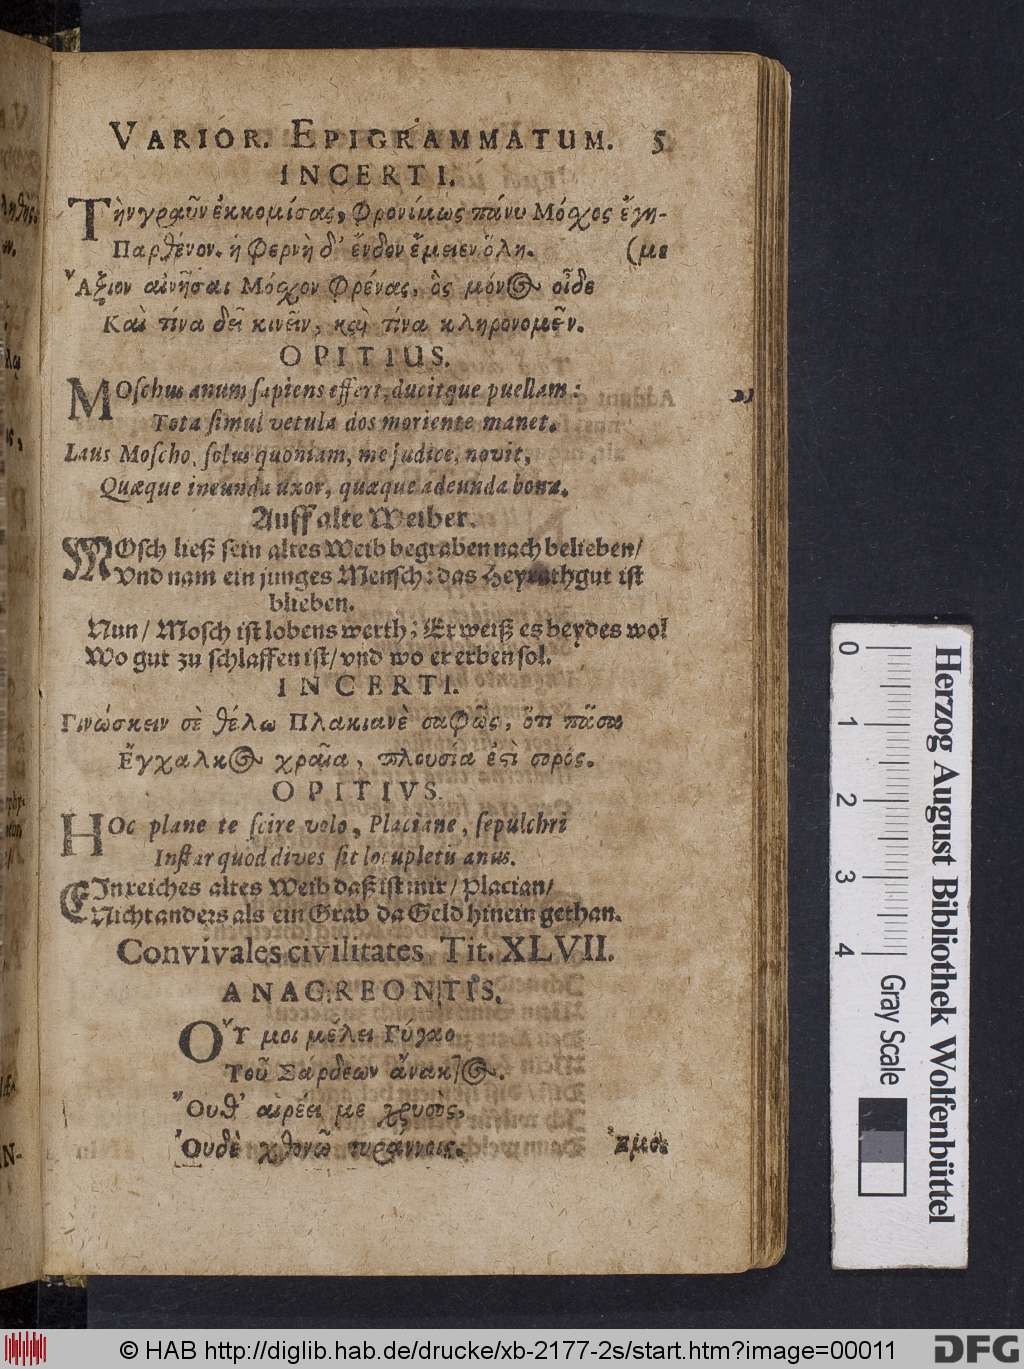 VARIOR. EPIGRAMMATUM. 5
INCERTI.
Τὴν γραῦν ἐκκομίσας, Φρονίμως πάνυ Μόσχος ἔγη-
Παρθένον. ἡ Φερνὴ δ' ἔνδον ἔμειεν ὅλη. (με
Ἄξιον αἰνῆσαι Μόσχον Φρένας, ὃς μόνος οἶδε
Καὶ τίνα δεῖ κινεῖν, καὶ τίνα κληρονομεῖν.
OPITIUS.
MOſchus anum ſapiens effert, ducitque puellam:
Tota ſimul vetula dos moriente manet.
Laus Moſcho, ſolus quoniam, me judice, novit,
Quæque ineunda uxor, quæque adeunda bona.
Auff alte Weiber.
MOſch ließ ſein altes Weib begraben nach belieben/
Vnd nam ein junges Menſch: das Heyrathgut iſt
blieben.
Nun/ Moſch iſt lobens werth; Er weiß es beydes wol
Wo gut zu ſchlaffen iſt/ vnd wo er erben ſol.
INCERTI.
Γινώσκειν σὲ θέλω Πλακιανὲ σαφῶς, ὅτι πᾶσα
Ἔγχαλκος γραῖα, πλουσία ἐστὶ σορός.
OPITIVS.
HOc plane te ſcire volo, Placiane, ſepulchri
Inſtar quod dives ſit locupletis anus.
EIn reiches altes Weib daß iſt mir/ Placian/
Nicht anders als ein Grab da Geld hinein gethan.
Convivales civilitates, Tit. XLVII.
ANACREONTIS.
Οὔ μοι μέλει Γύγαο
Τοῦ Σάρδεων ἄνακτος.
Οὔθ' αἱρέει με χρυσὸς,
Οὐδὲ χθονῶ τυράννοις. Ἐμοὶ
0 1 2 3 4
Herzog August Bibliothek Wolfenbüttel
Gray Scale
© HAB http://diglib.hab.de/drucke/xb-2177-2s/start.htm?image=00011
DFG